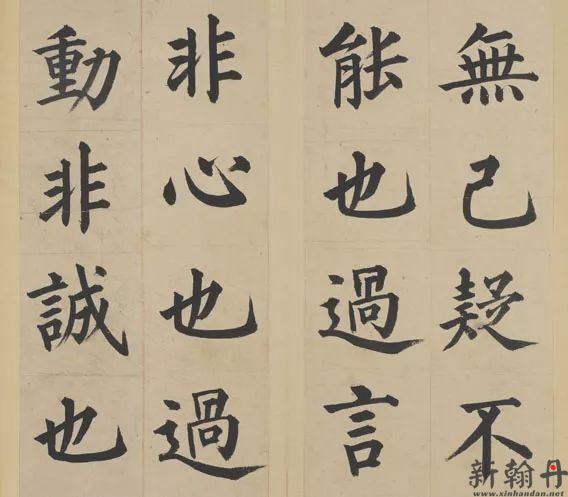 無己疑不
能也過言
非心也過
動非誠也
新翰丹
www.xinhandan.net